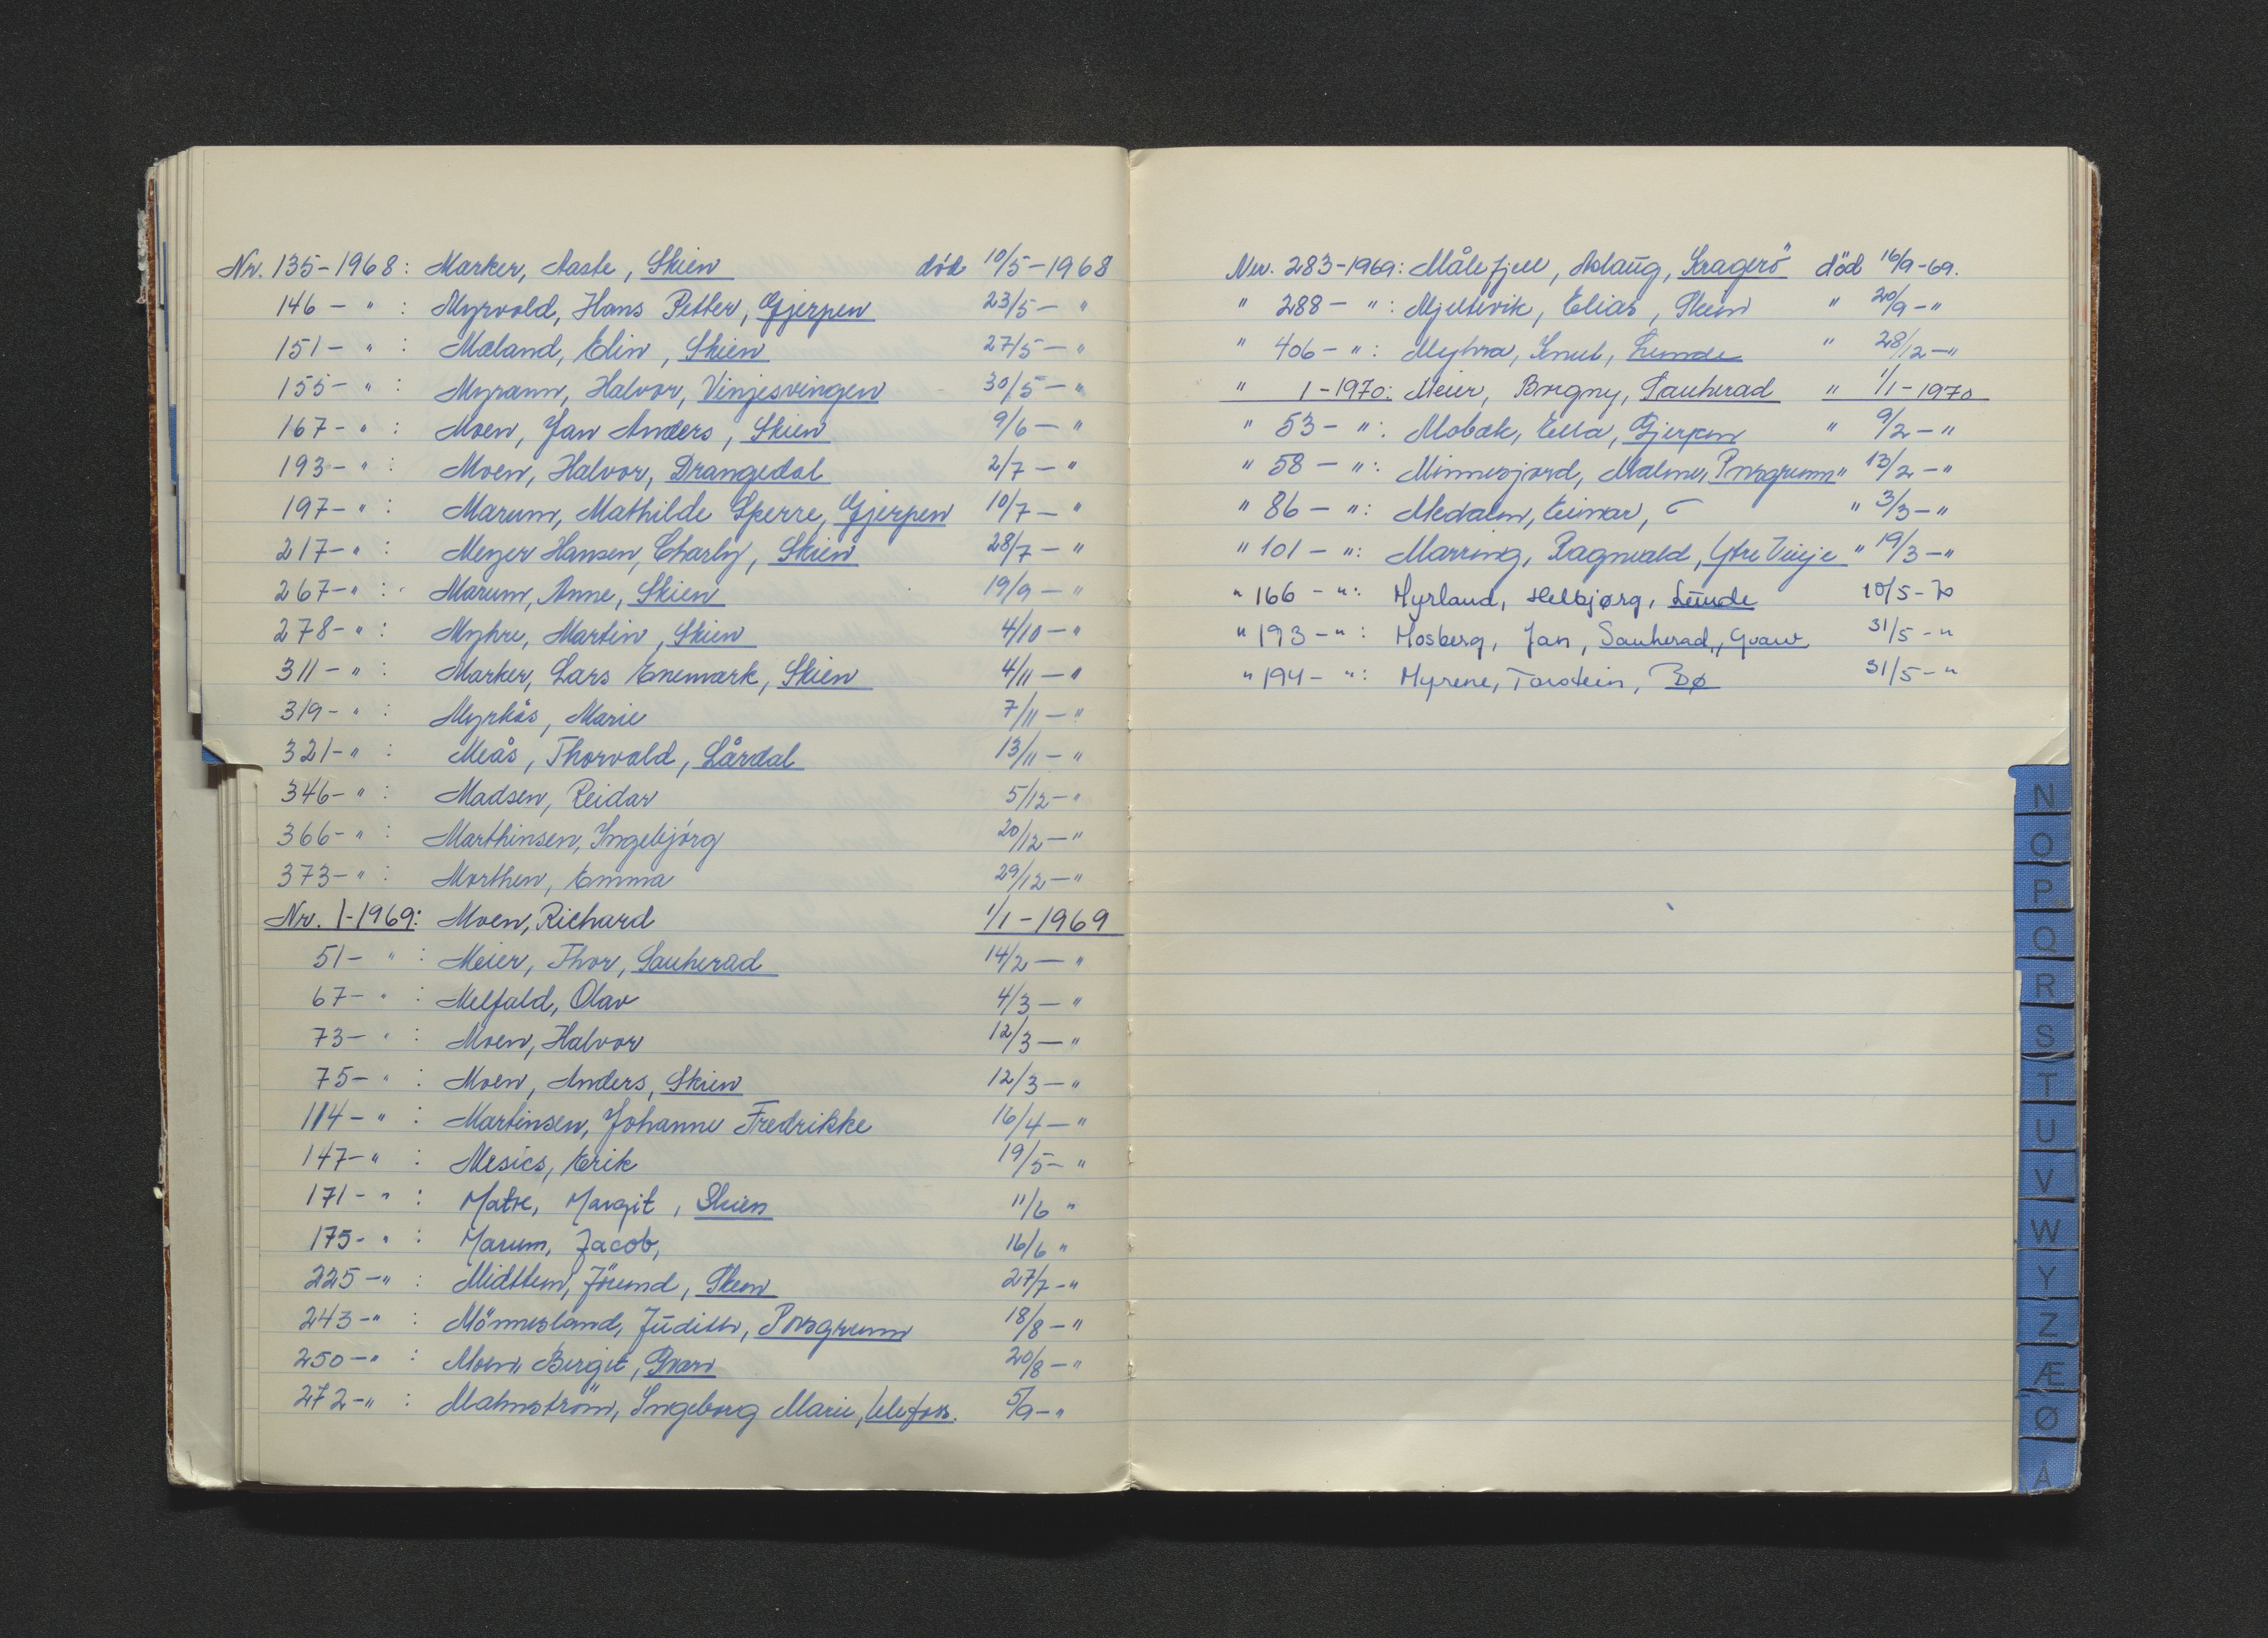 Nr. 135-1968: Marker, Aaste, Skien død 10/5-1968
146- " : Myrvold, Hans Petter, Gjerpen 23/5- "
151- " : Mæland, Elin, Skien 27/5- "
155- " : Myrann, Halvor, Vinjesvingen 30/5- "
167- " : Moen, Jan Anders, Skien 9/6- "
193- " : Moen, Halvor, Drangedal 2/7- "
197- " : Marum, Mathilde Sperre, Gjerpen 10/7- "
217- " : Meyer Hansen, Charly, Skien 28/7- "
267- " : Marum, Anne, Skien 19/9- "
278- " : Myhre, Martin, Skien 4/10- "
311- " : Marker, Lars Enemark, Skien 4/11- "
319- " : Myrhås, Marie 7/11- "
321- " : Meås, Thorvald, Lårdal 13/11- "
346- " : Madsen, Reidar 5/12- "
366- " : Marthinsen, Ingebjörg 20/12- "
373- " : Morthen, Emma 29/12- "
Nr. 1-1969: Moen, Richard 1/1-1969
51- " : Meier, Thor, Sauherad 14/2- "
67- " : Melfald, Olav 4/3- "
73- " : Moen, Halvor 12/3- "
75- " : Moen, Anders, Skien 12/3- "
114- " : Martinsen, Johanne Fredrikke 16/4- "
147- " : Mesics, Erik 19/5- "
171- " : Matre, Margit, Skien 11/6 "
175- " : Marum, Jacob, 16/6 "
225- " : Midttun, Jörund, Skien 27/7- "
243- " : Mönnesland, Judith, Porsgrunn 18/8- "
250- " : Moen, Birgit, Gvarv 20/8- "
272- " : Malmström, Ingeborg Marie, Ulefoss. 5/9- "
Nr. 283-1969: Målefjell, Aslaug, Kragerö död 16/9-69.
" 288- " : Mjeltevik, Elias, Skien " 20/9- "
" 406- " : Myhra, Knut, Lunde " 28/12- "
" 1-1970: Meier, Borgny, Sauherad " 1/1-1970
" 53- " : Mobæk, Ella, Gjerpen " 9/2- "
" 58- " : Minnesjord, Malme, Porsgrunn " 13/2- "
" 86- " : Medalen, Einar, " 3/3- "
" 101- " : Marring, Ragnvald, Ytre Vinje " 19/3- "
" 166- " : Myrland, Helbjørg, Lunde 10/5-70
" 193- " : Mosberg, Jan, Sauherad, Gvarv 31/5- "
" 194- " : Myrene, Torstein, Bø 31/5- "
N
O
P
Q
R
S
T
U
V
W
Y
Z
Æ
Ø
Å